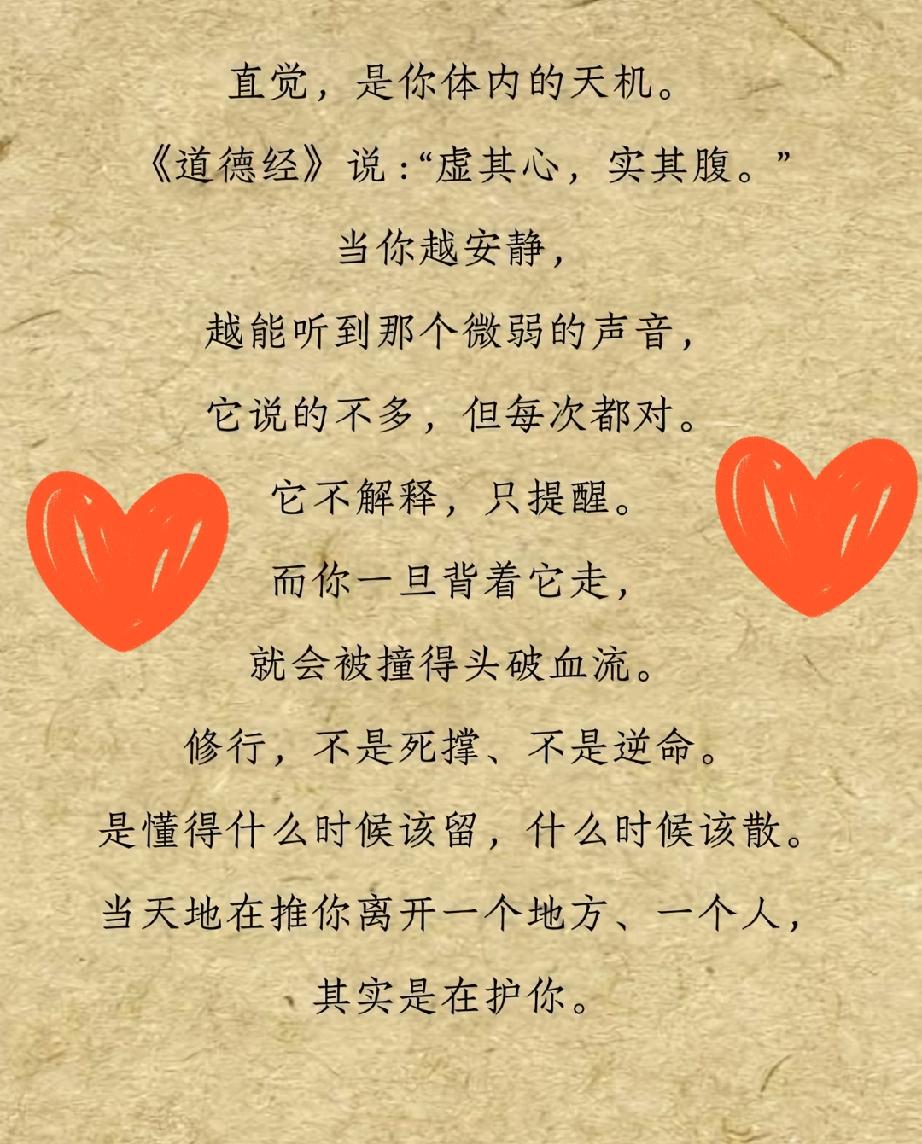 直觉，是你体内的天机。
《道德经》说：“虚其心，实其腹。”
当你越安静，
越能听到那个微弱的声音，
它说的不多，但每次都对。
它不解释，只提醒。
而你一旦背着它走，
就会被撞得头破血流。
修行，不是死撑、不是逆命。
是懂得什么时候该留，什么时候该散。
当天地在推你离开一个地方、一个人，
其实是在护你。